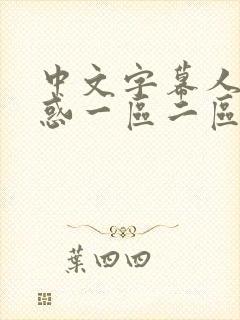 中文字幕人
惑一區二區
葉四四